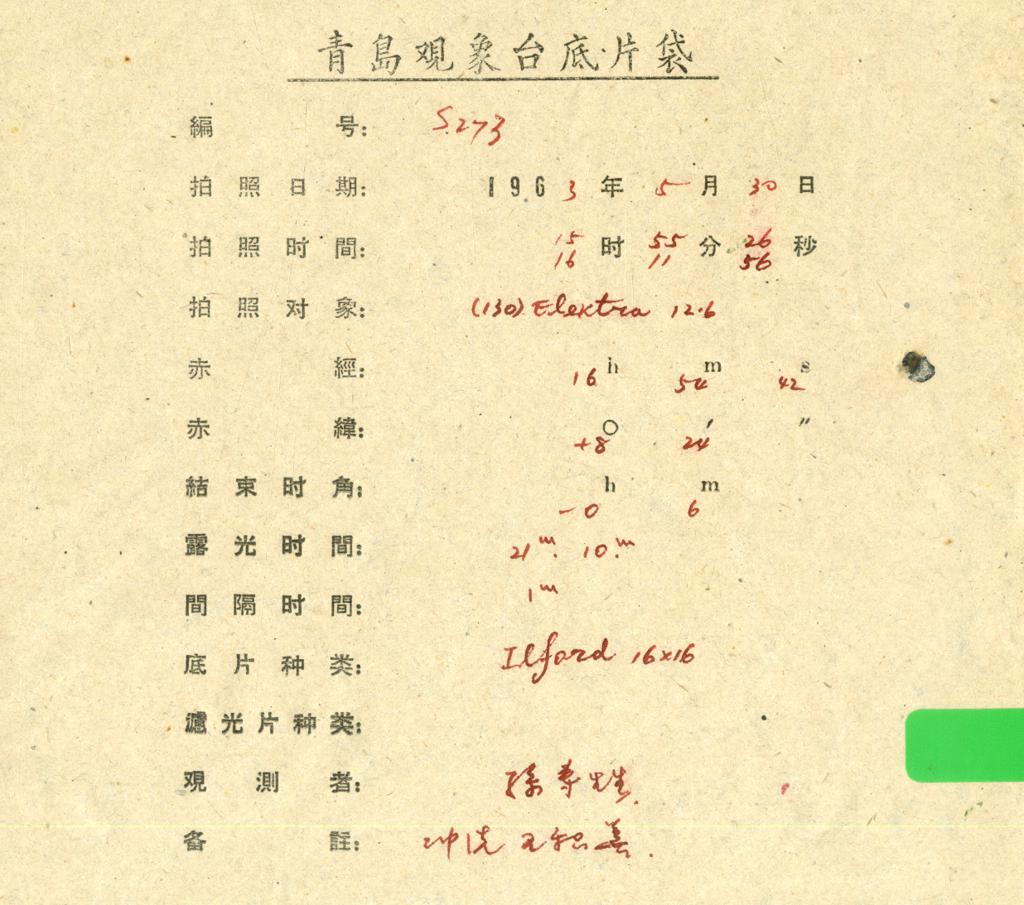 青島观象台底片袋
編号: S.273
拍照日期: 1963年5月30日
拍照时間: 15时55分26秒
16 11 56
拍照对象: (130) Elektra 12.6
赤經: 16h 54m 42s
赤緯: +8° 24′ ″
結束时角: -0h 6m
露光时間: 21m. 10m.
間隔时間: 1m
底片种类: Ilford 16×16
濾光片种类:
观測者: 孫寿
备註: 冲洗 王 善.